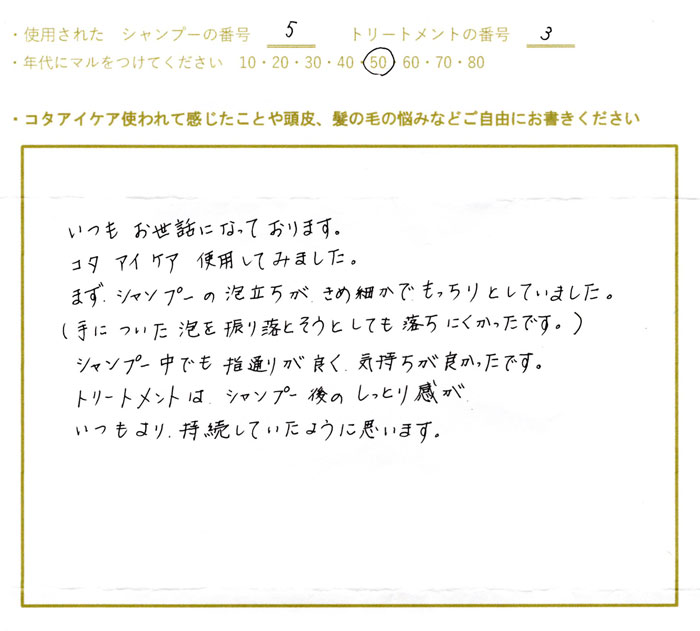 ・使用された シャンプーの番号 5 トリートメントの番号 3
・年代にマルをつけてください 10・20・30・40・50・60・70・80
・コタアイケア使われて感じたことや頭皮、髪の毛の悩みなどご自由にお書きください
いつも お世話になって おります。
コタ アイ ケア 使用してみました。
まず、シャンプーの泡立ちが、きめ細かで、もっちりとしていました。
(手に ついた 泡を 振り落とそうとしても 落ちにくかったです。)
シャンプー中でも 指通りが良く、気持ちが良かったです。
トリートメントは、シャンプー後の しっとり感が
いつもより、持続していたように思います。